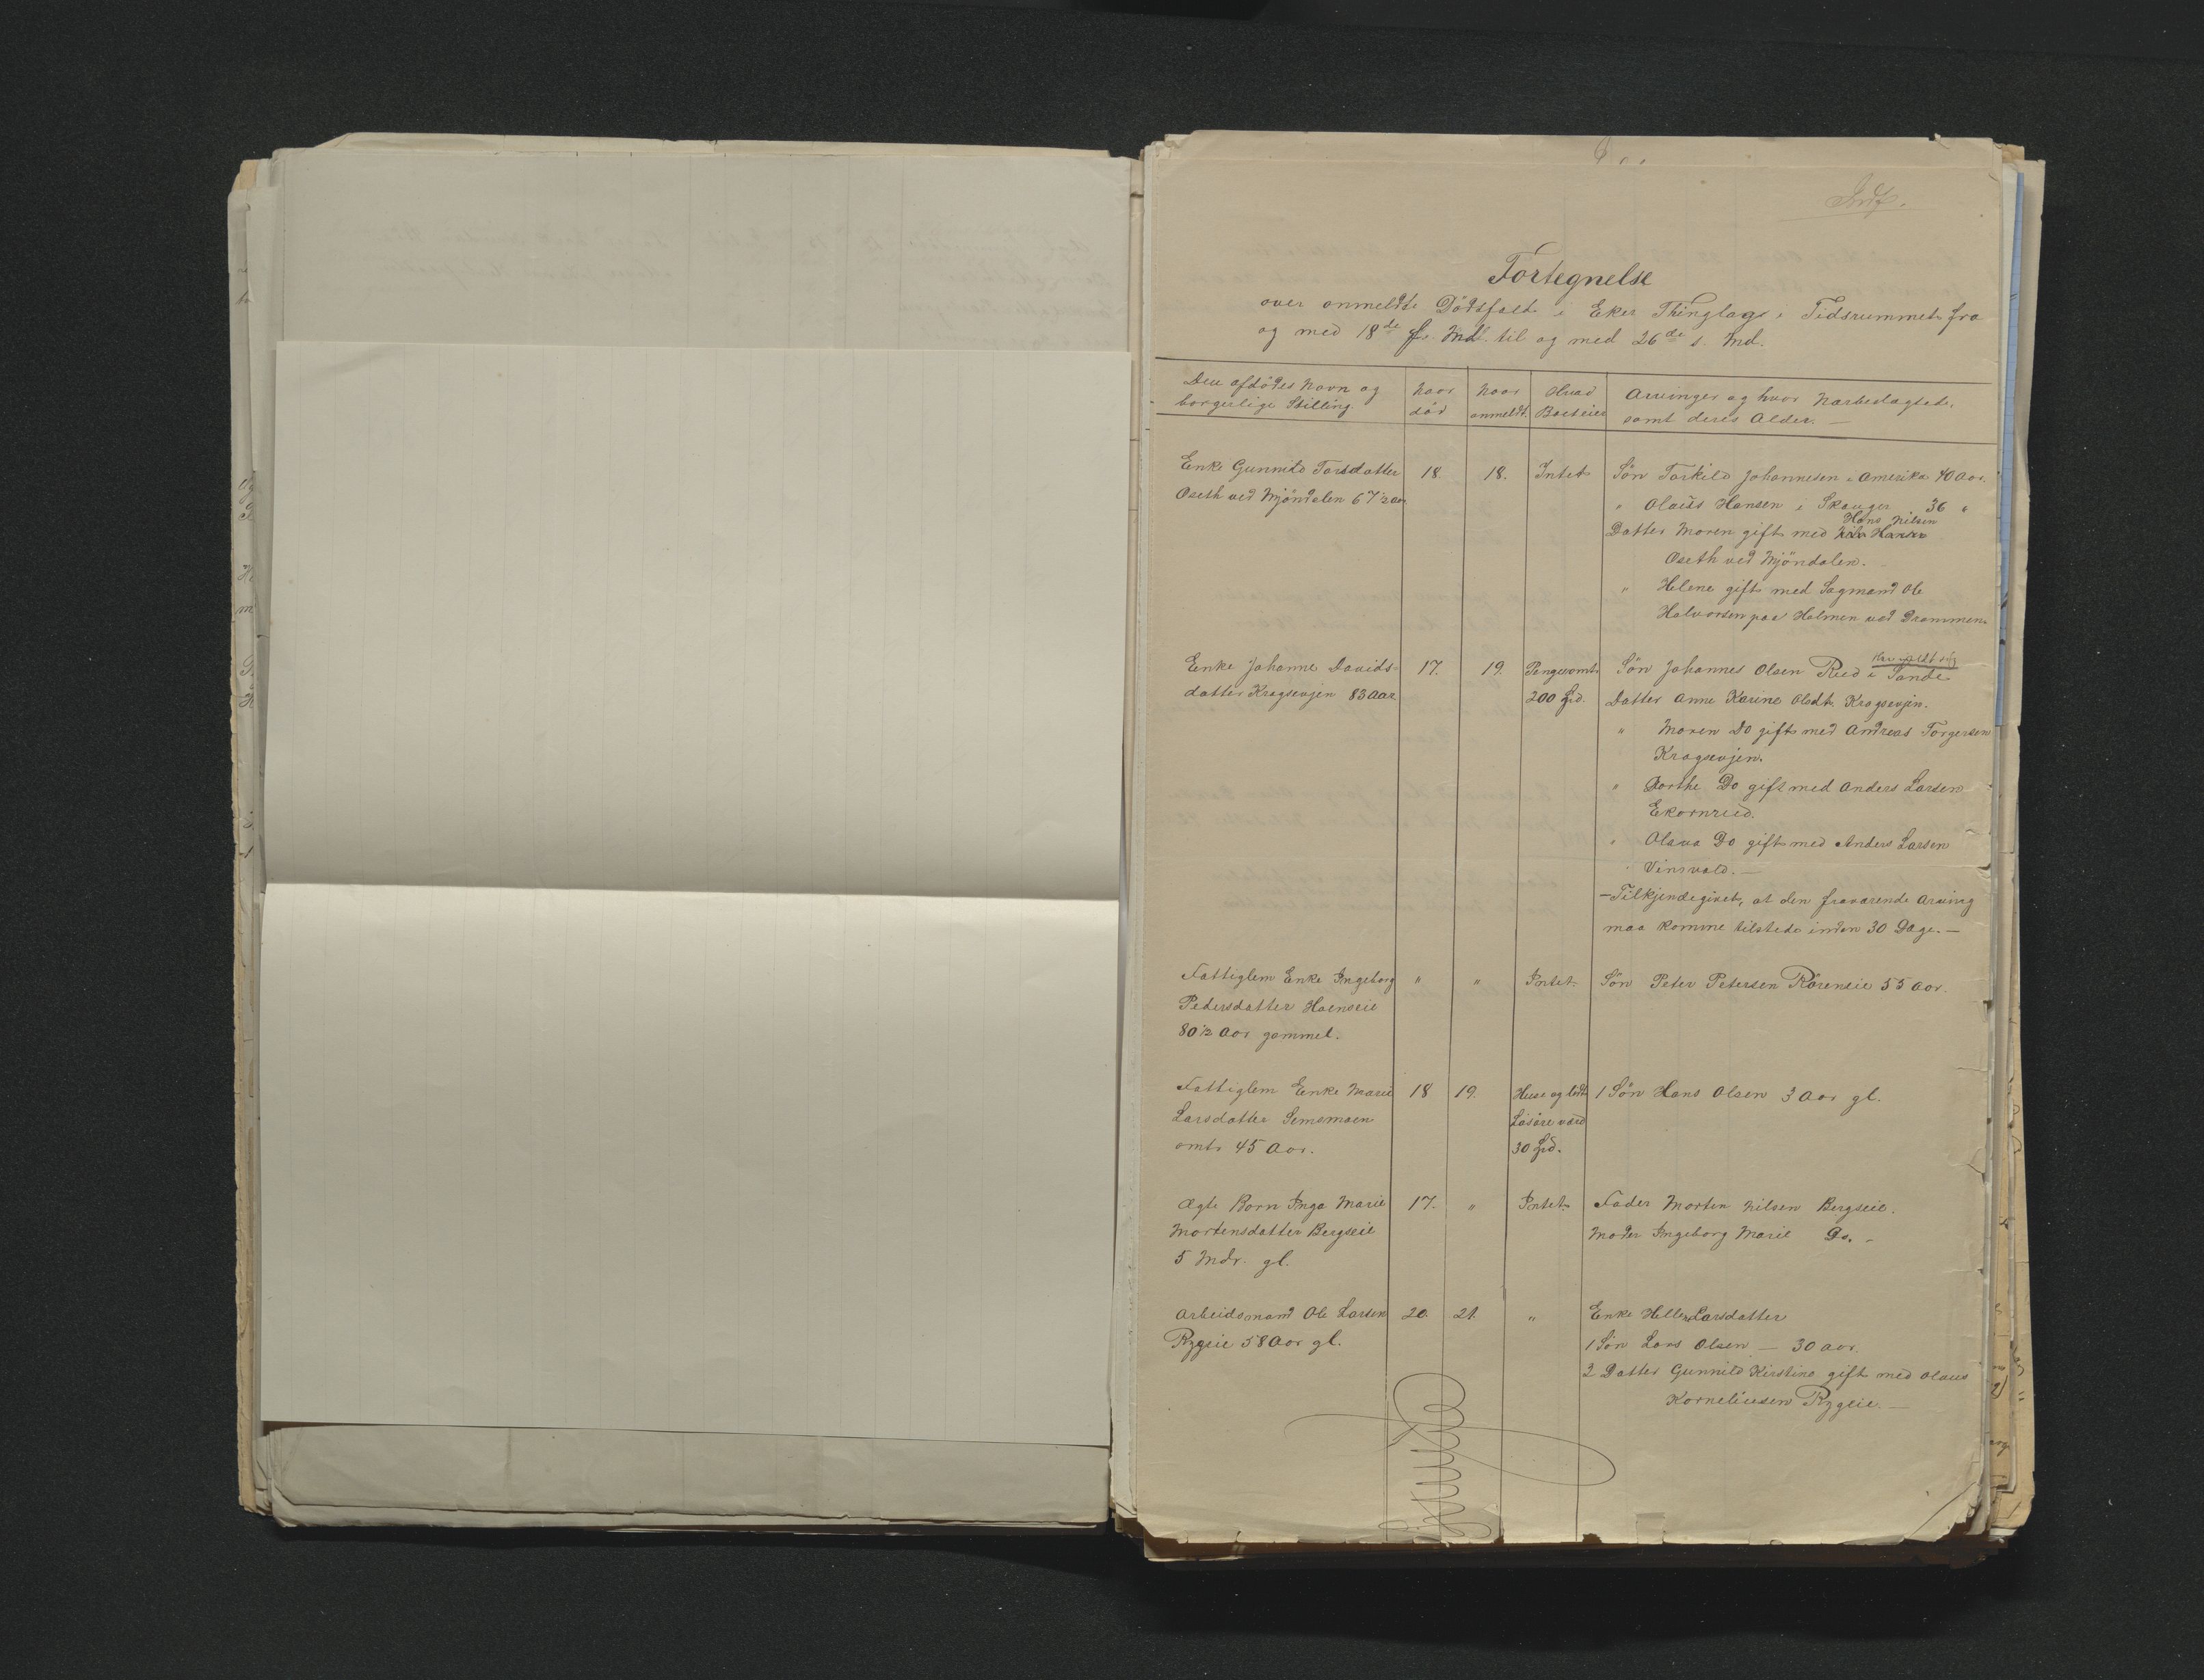 Indf.
Fortegnelse
over anmeldte Dödsfald i Eker Thinglag i Tidsrummet fra
og med 18de f. Md. til og med 26de s. Md.
Den afdödes Navn og
borgerlige Stilling.
Naar
död
Naar
anmeldt.
Hvad
Boet eier
Arvinger og hvor Nærbeslægtede,
samt deres Alder. —
Enke Gunnild Torsdatter
Oseth ved Mjöndalen 67 1/2 aar
18.
18.
Intet
Sön Torkild Johannesen i Amerika 40 Aar.
" Olaus Hansen i Skauger 36 "
Hans Nilsen
Datter Maren gift med Nils Hansen
Oseth ved Mjöndalen.
" Helene gift med Sagmand Ole
Halvorsen paa Holmen ved Drammen.
Enke Johanne Davids-
datter Kragsevjen 83 Aar
17.
19.
Penge omt.
200 Spd.
Sön Johannes Olsen Rud i Sande
Datter Anne Karine Olsdt. Kragsevjen.
" Maren Do gift med Andreas Torgersen
Kragsevjen.
" Dorthe Do gift med Anders Larsen
Ekornrud.
" Olava Do gift med Anders Larsen
Vinsvold. —
— Tilkjendegivet, at den fraværende Arving
maa komme tilstede inden 30 Dage. —
Fattiglem Enke Ingeborg
Pedersdatter Hoenseie
80 1/2 Aar gammel.
"
"
Intet.
Sön Peter Petersen Rörenseie 55 Aar.
Fattiglem Enke Marie
Larsdatter Semsmoen
omt. 45 Aar.
18
19.
Huse og lidt
Lösöre værd
30 Spd.
1 Sön Hans Olsen 3 Aar gl.
Ægte Barn Inga Marie
Mortensdatter Bergseie
5 Mdr. gl.
17.
"
Intet
Fader Morten Nilsen Bergseie.
Moder Ingeborg Marie Do. -
Arbeidsmand Ole Larsen
Rygeie 58 Aar gl.
20.
21.
"
Enke Helle Larsdatter
1 Sön Lars Olsen — 30 aar.
2 Datter Gunnild Kirstine gift med Olaus
Korneliusen Rygeie. —